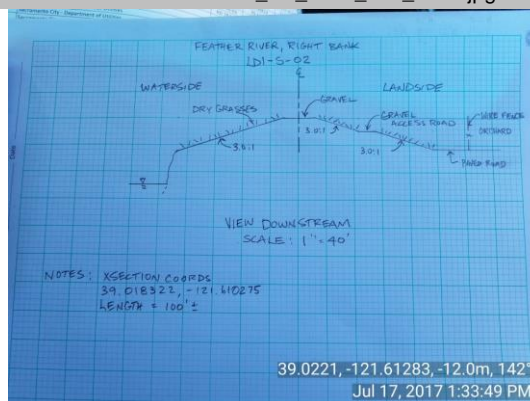 FEATHER RIVER, RIGHT BANK
LD1-S-02
WATERSIDE
LANDSIDE
DRY GRASSES
GRAVEL
GRAVEL
ACCESS ROAD
WIRE FENCE
ORCHARD
3.0:1
3.0:1
3.0:1
VIEW DOWNSTREAM
SCALE: 1"=40'
NOTES: XSECTION COORDS
39.018322, -121.610275
LENGTH = 100'±
39.0221, -121.61283, -12.0m, 142°
Jul 17, 2017 1:33:49 PM